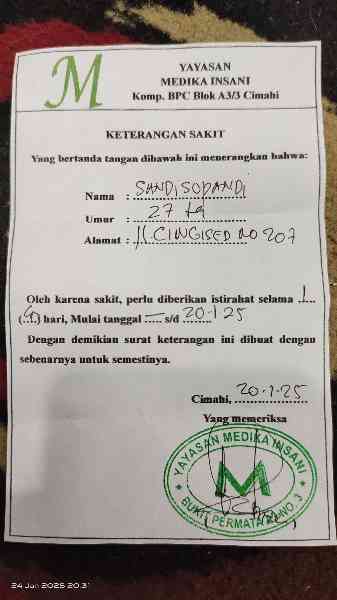 M
YAYASAN
MEDIKA INSANI
Komp. BPC Blok A3/3 Cimahi
KETERANGAN SAKIT
Yang bertanda tangan dibawah ini menerangkan bahwa:
Nama : SANDI SOPANDI
Umur : 27 th
Alamat : Jl. CINGISED NO 207
Oleh karena sakit, perlu diberikan istirahat selama 1
(....) hari, Mulai tanggal — s/d 20-1-25
Dengan demikian surat keterangan ini dibuat dengan
sebenarnya untuk semestinya.
Cimahi, 20-1-25
Yang memeriksa
YAYASAN MEDIKA INSANI
M
BUKIT PERMATA NO. 3
24 Jan 2025 20.31